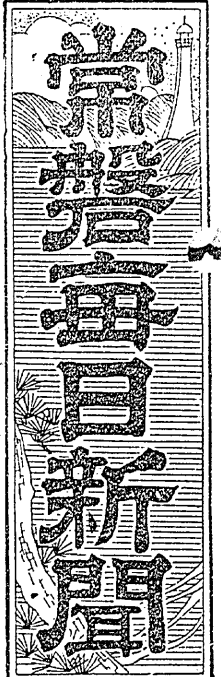 常磐毎日新聞